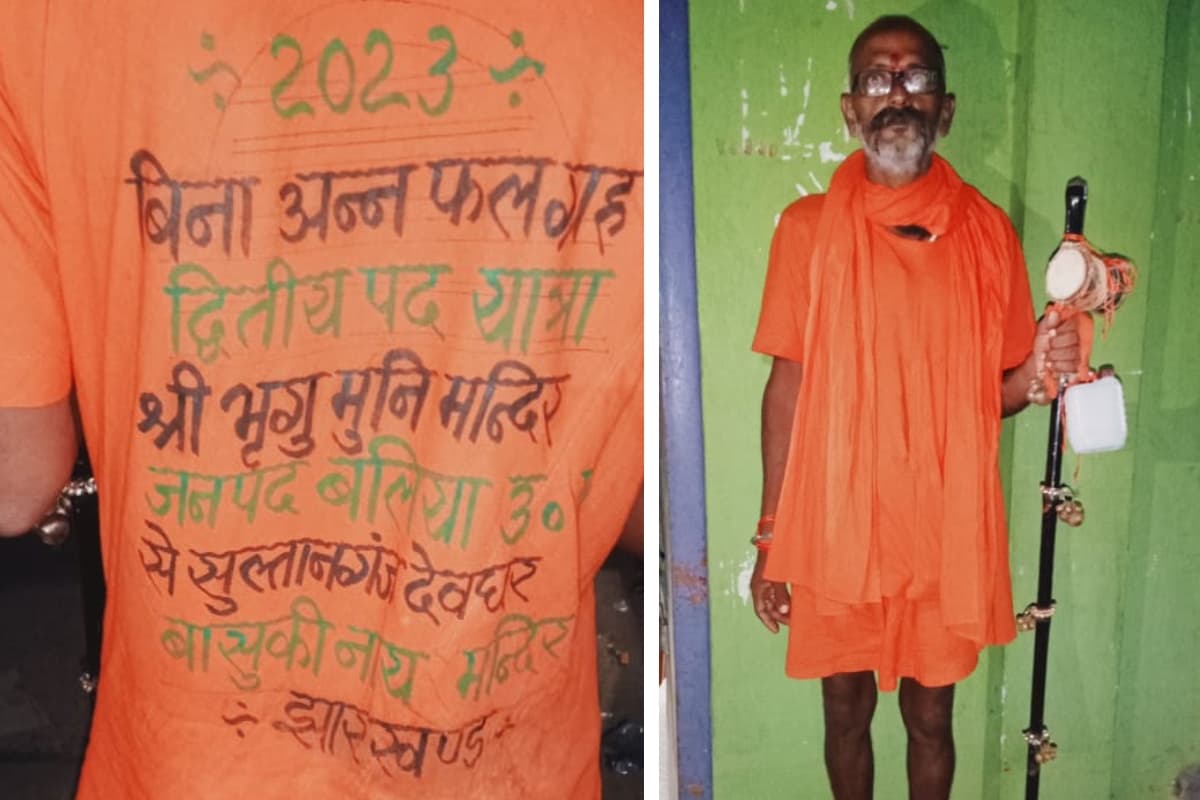 ÷ 2023 ÷
बिना अन्न फलग्रह
द्वितीय पद यात्रा
श्री भृगु मुनि मन्दिर
जनपद बलिया उ०
से सुल्तानगंज देवघर
बासुकी नाथ मन्दिर
÷ झारखण्ड ÷